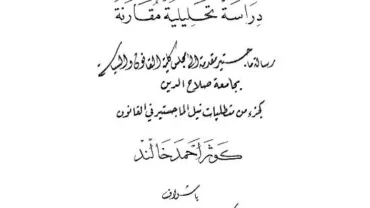 دِرَاسَة تَحْلِيلِيَّة مُقَارَنَة
رسالة ماجستير مقدمة الى مجلس كلية القانون والسياسة
بجامعة صلاح الدين
كجزء من متطلبات نيل الماجستير في القانون
كوثر أحمد خالند
باشراف